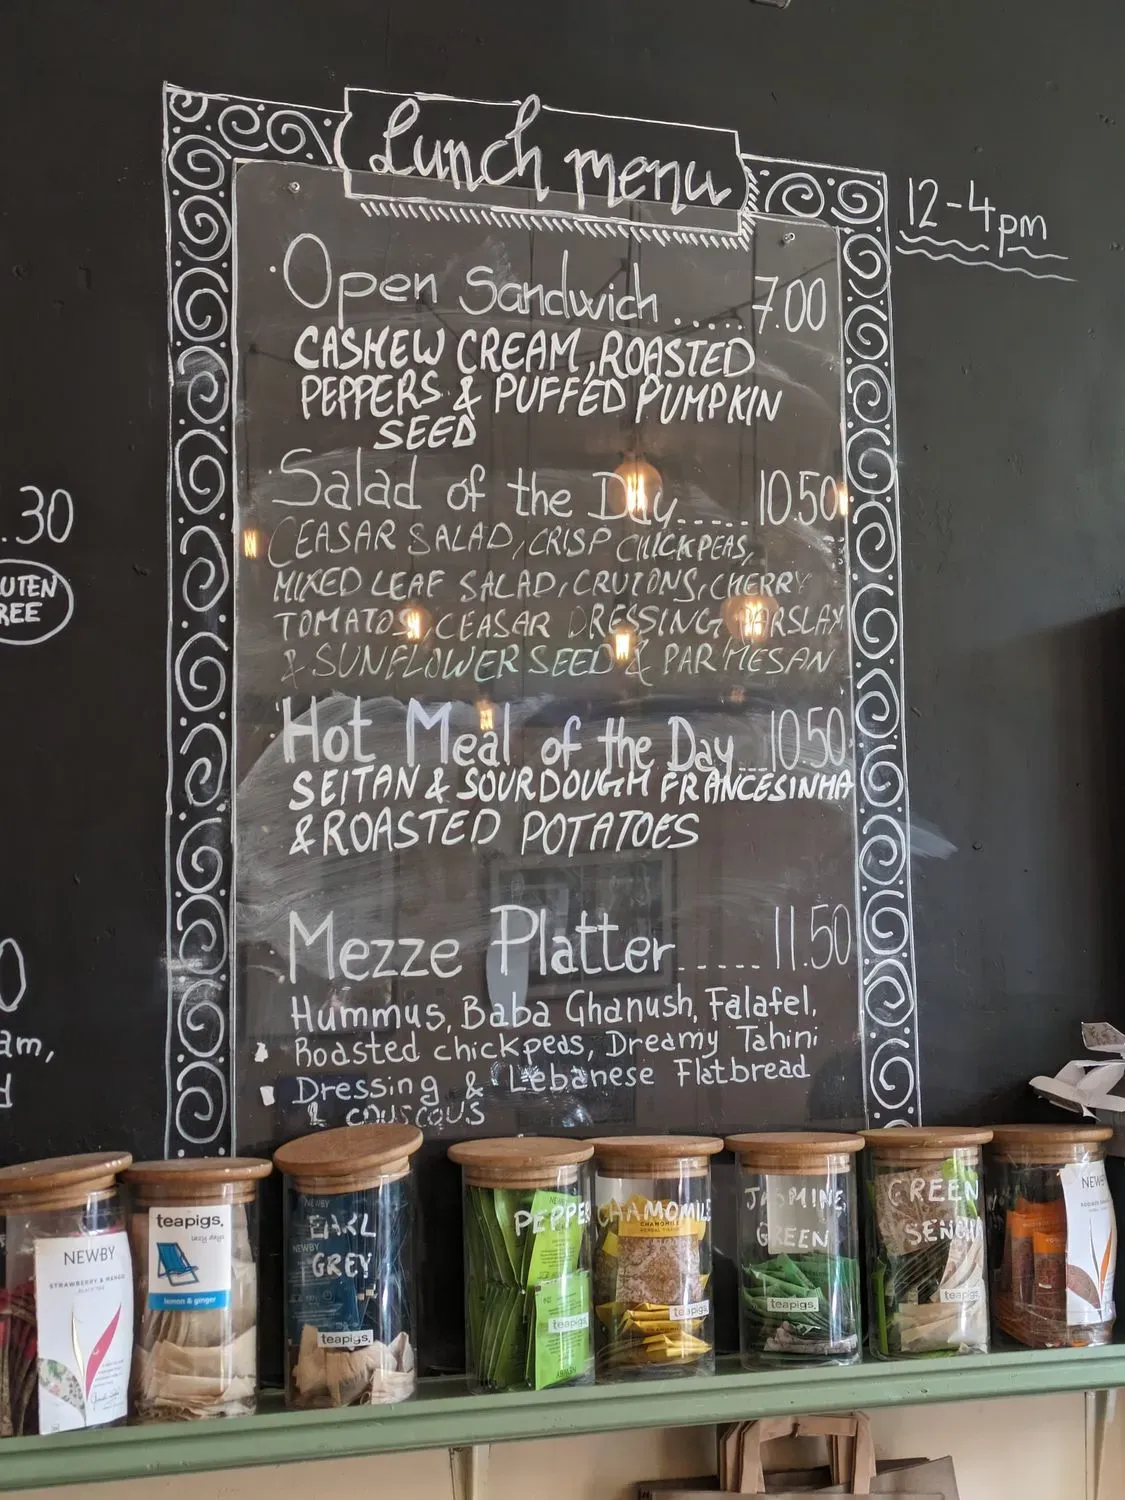 Lunch menu
12-4pm
Open Sandwich ..... 7.00
CASHEW CREAM, ROASTED
PEPPERS & PUFFED PUMPKIN
SEED
Salad of the Day ..... 10.50
CEASAR SALAD, CRISP CHICKPEAS,
MIXED LEAF SALAD, CRUTONS, CHERRY
TOMATOS, CEASAR DRESSING, PARSLAY
& SUNFLOWER SEED & PARMESAN
Hot Meal of the Day ... 10.50
SEITAN & SOURDOUGH FRANCESINHA
& ROASTED POTATOES
Mezze Platter ..... 11.50
Hummus, Baba Ghanush, Falafel,
Roasted chickpeas, Dreamy Tahini
Dressing & Lebanese Flatbread
& couscous
.30
UTEN
REE
0
am,
NEWBY
STRAWBERRY & MANGO
BLACK TEA
teapigs.
lazy days
lemon & ginger
NEWBY
EARL
GREY
teapigs.
PEPPE
teapigs.
NEWBY
CHAMOMILE
CHAMOMILE
teapigs.
JASMINE
GREEN
teapigs.
GREEN
SENCH
teapigs.
NEWBY